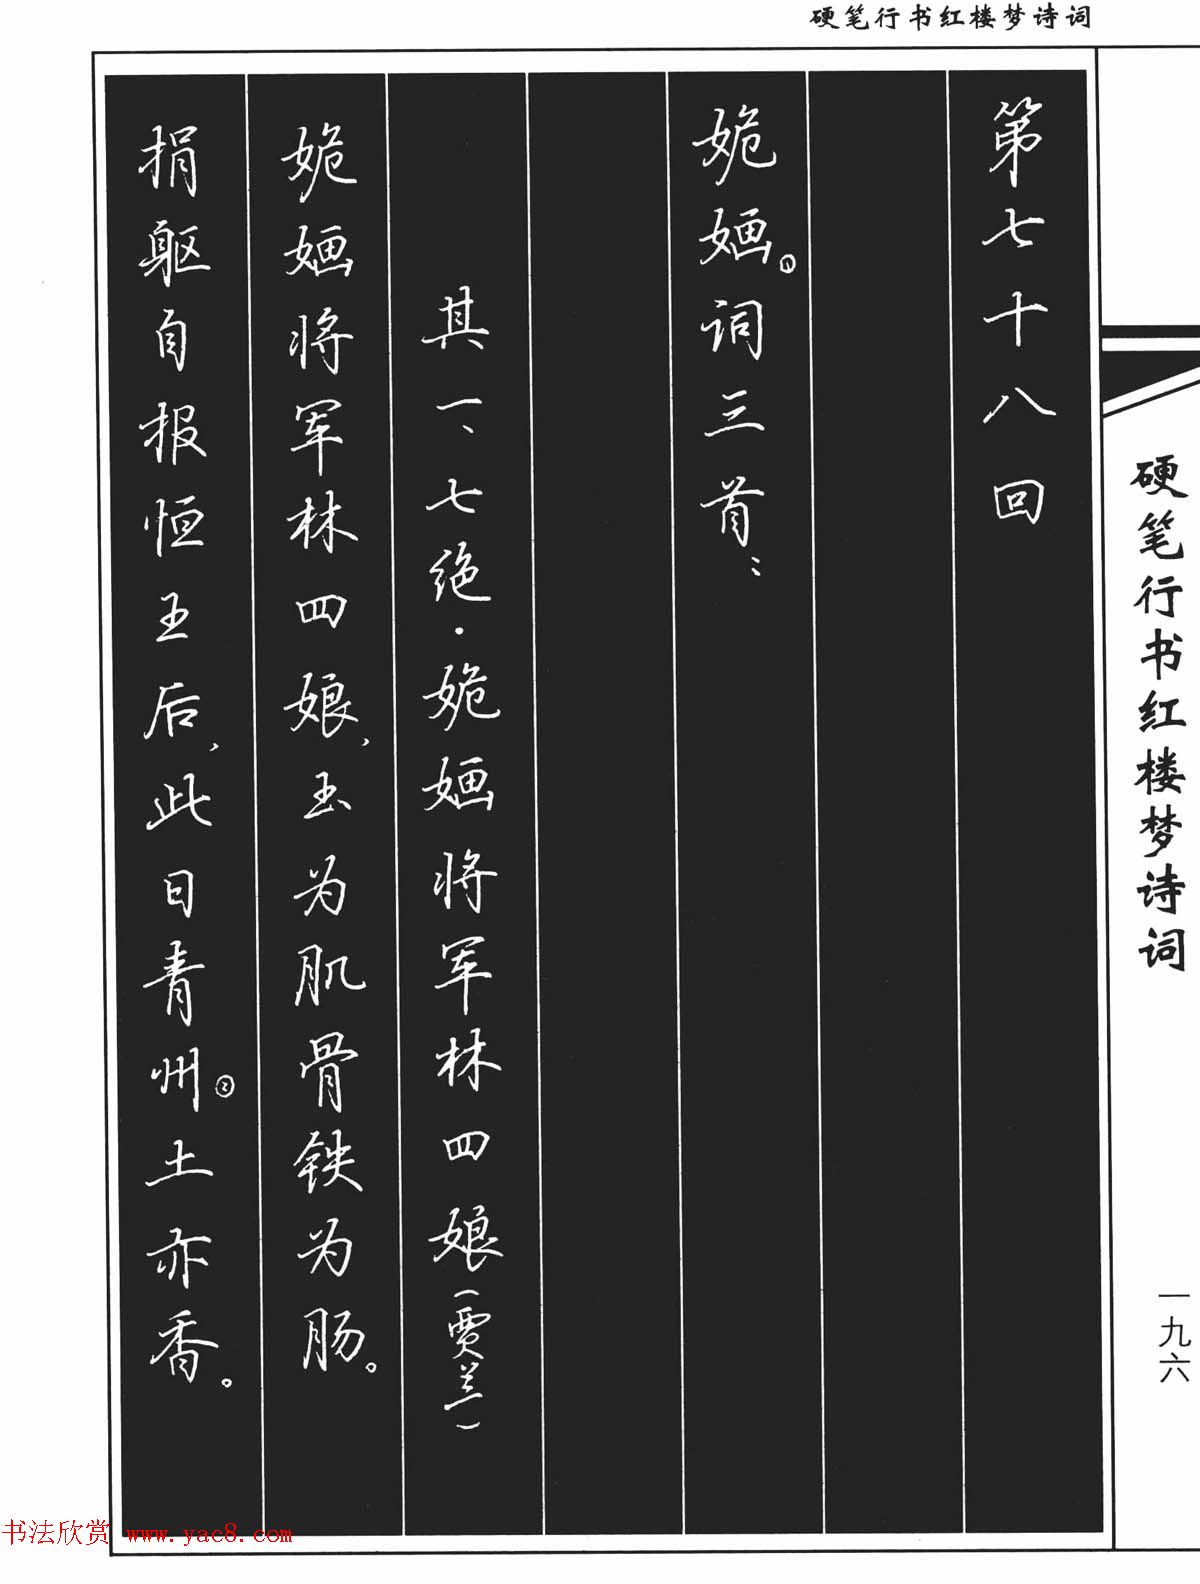 硬笔行书红楼梦诗词
第七十八回
姽婳①词三首：
其一、七绝·姽婳将军林四娘（贾兰）
姽婳将军林四娘，玉为肌骨铁为肠。
捐躯自报恒王后，此日青州②土亦香。
硬笔行书红楼梦诗词
一九六
书法欣赏 www.yac8.com